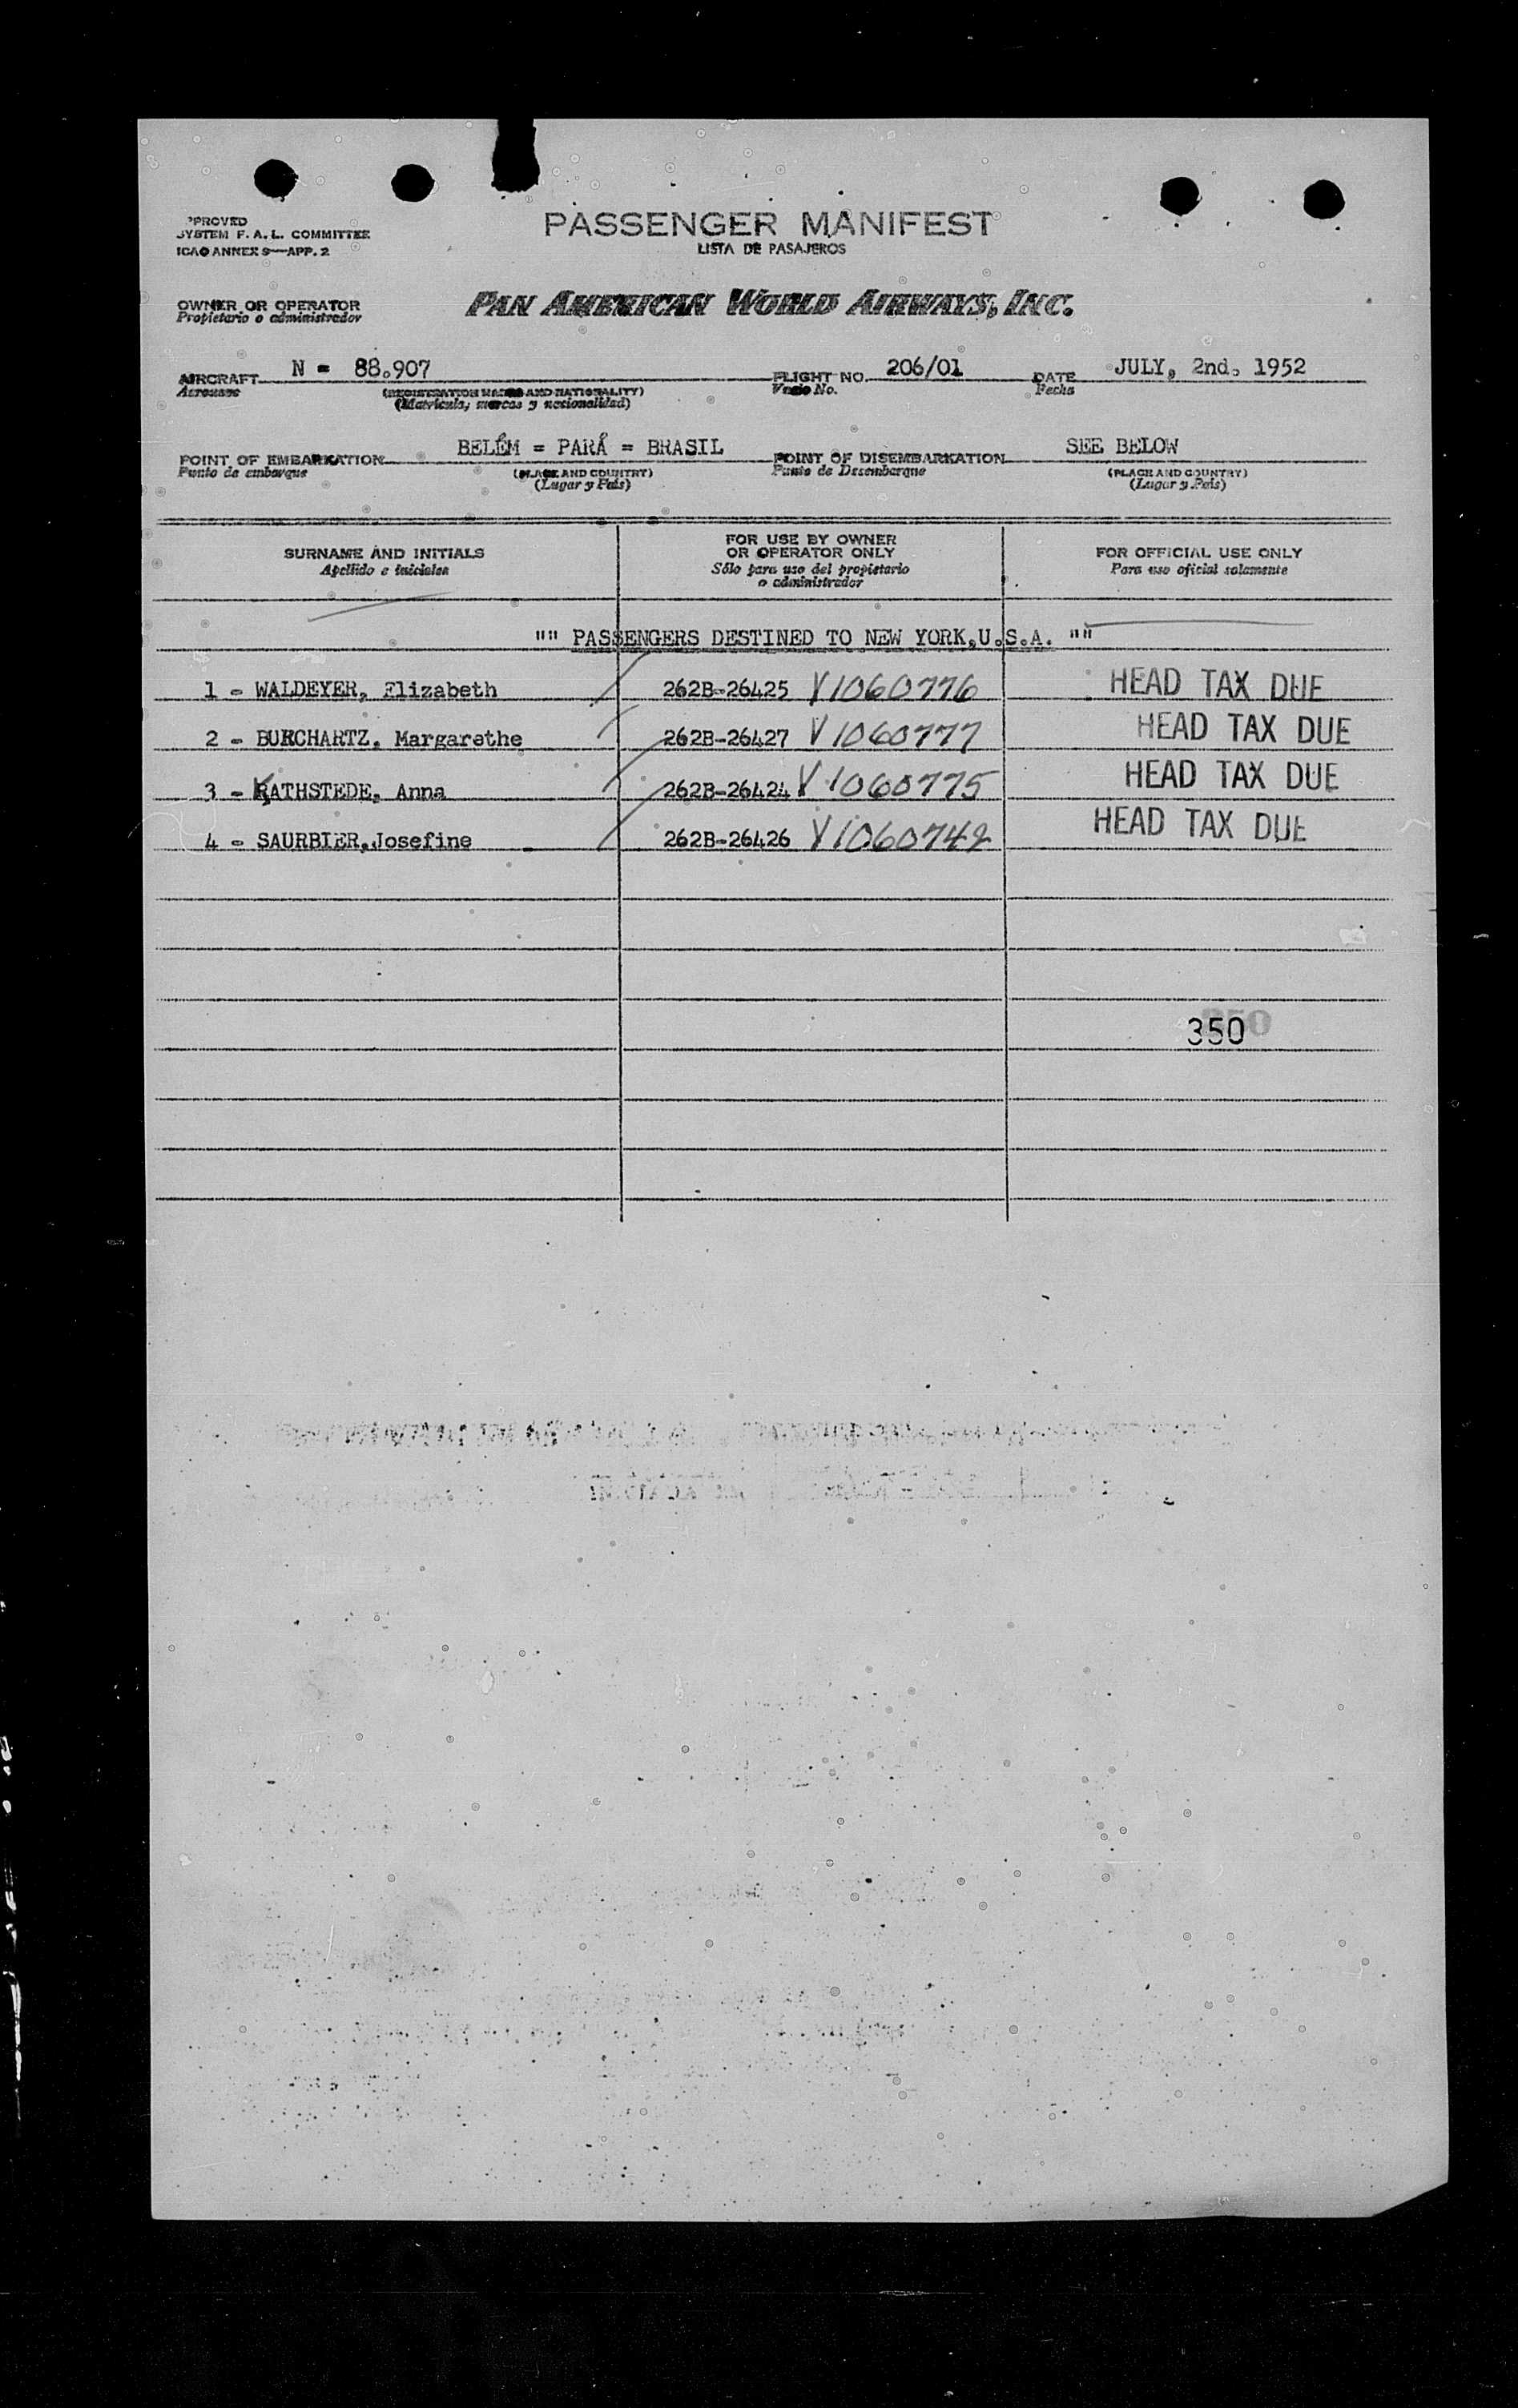 PASSENGER MANIFEST
LISTA DE PASAJEROS
SYSTEM F. A. L. COMMITTEE
ICAO ANNEX 9—APP. 2
OWNER OR OPERATOR
Propietario o administrador
PAN AMERICAN WORLD AIRWAYS, INC.
AIRCRAFT N = 88.907 FLIGHT NO. 206/01 DATE JULY, 2nd. 1952
Aeronave (REGISTRATION MARKS AND NATIONALITY) No. Fecha
(Matricula, marcas y nacionalidad)
POINT OF EMBARKATION BELÉM = PARÁ = BRASIL POINT OF DISEMBARKATION SEE BELOW
Punto de embarque (PLACE AND COUNTRY) Punto de Desembarque (PLACE AND COUNTRY)
(Lugar y País) (Lugar y País)
SURNAME AND INITIALS
Apellido e iniciales
FOR USE BY OWNER
OR OPERATOR ONLY
Sólo para uso del propietario
o administrador
FOR OFFICIAL USE ONLY
Para uso oficial solamente
"" PASSENGERS DESTINED TO NEW YORK,U.S.A. ""
1 - WALDEYER, Elizabeth 262B-26425 V1060776 HEAD TAX DUE
2 - BURCHARTZ, Margarethe 262B-26427 V1060777 HEAD TAX DUE
3 - KATHSTEDE, Anna 262B-26424 V1060775 HEAD TAX DUE
4 - SAURBIER,Josefine 262B-26426 V1060742 HEAD TAX DUE
350